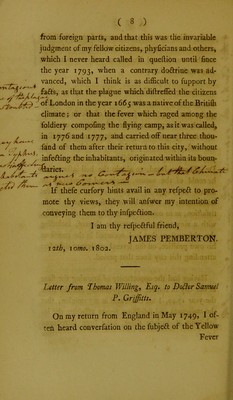 ( 8 )
from foreign parts, and that this was the invariable
judgment of my fellow citizens, phyſicians and others,
which I never heard called in queſtion until ſince
the year 1793, when a contrary doctrine was ad-
vanced, which I think is as difficult to ſupport by
facts, as that the plague which diſtreſſed the citizens
of London in the year 1665 was a native of the Britiſh
climate; or that the fever which raged among the
ſoldiery compoſing the flying camp, as it was called,
in 1776 and 1777, and carried off near three thou-
ſand of them after their return to this city, without
infecting the inhabitants, originated within its boun-
daries.
If theſe curſory hints avail in any reſpect to pro-
mote thy views, they will anſwer my intention of
conveying them to thy inſpection.
I am thy reſpectful friend,
JAMES PEMBERTON.
12th, 10mo. 1802.
Letter from Thomas Willing, Eſq. to Doctor Samuel
P. Griffitts.
On my return from England in May 1749, I of-
ten heard converſation on the ſubject of the Yellow
Fever